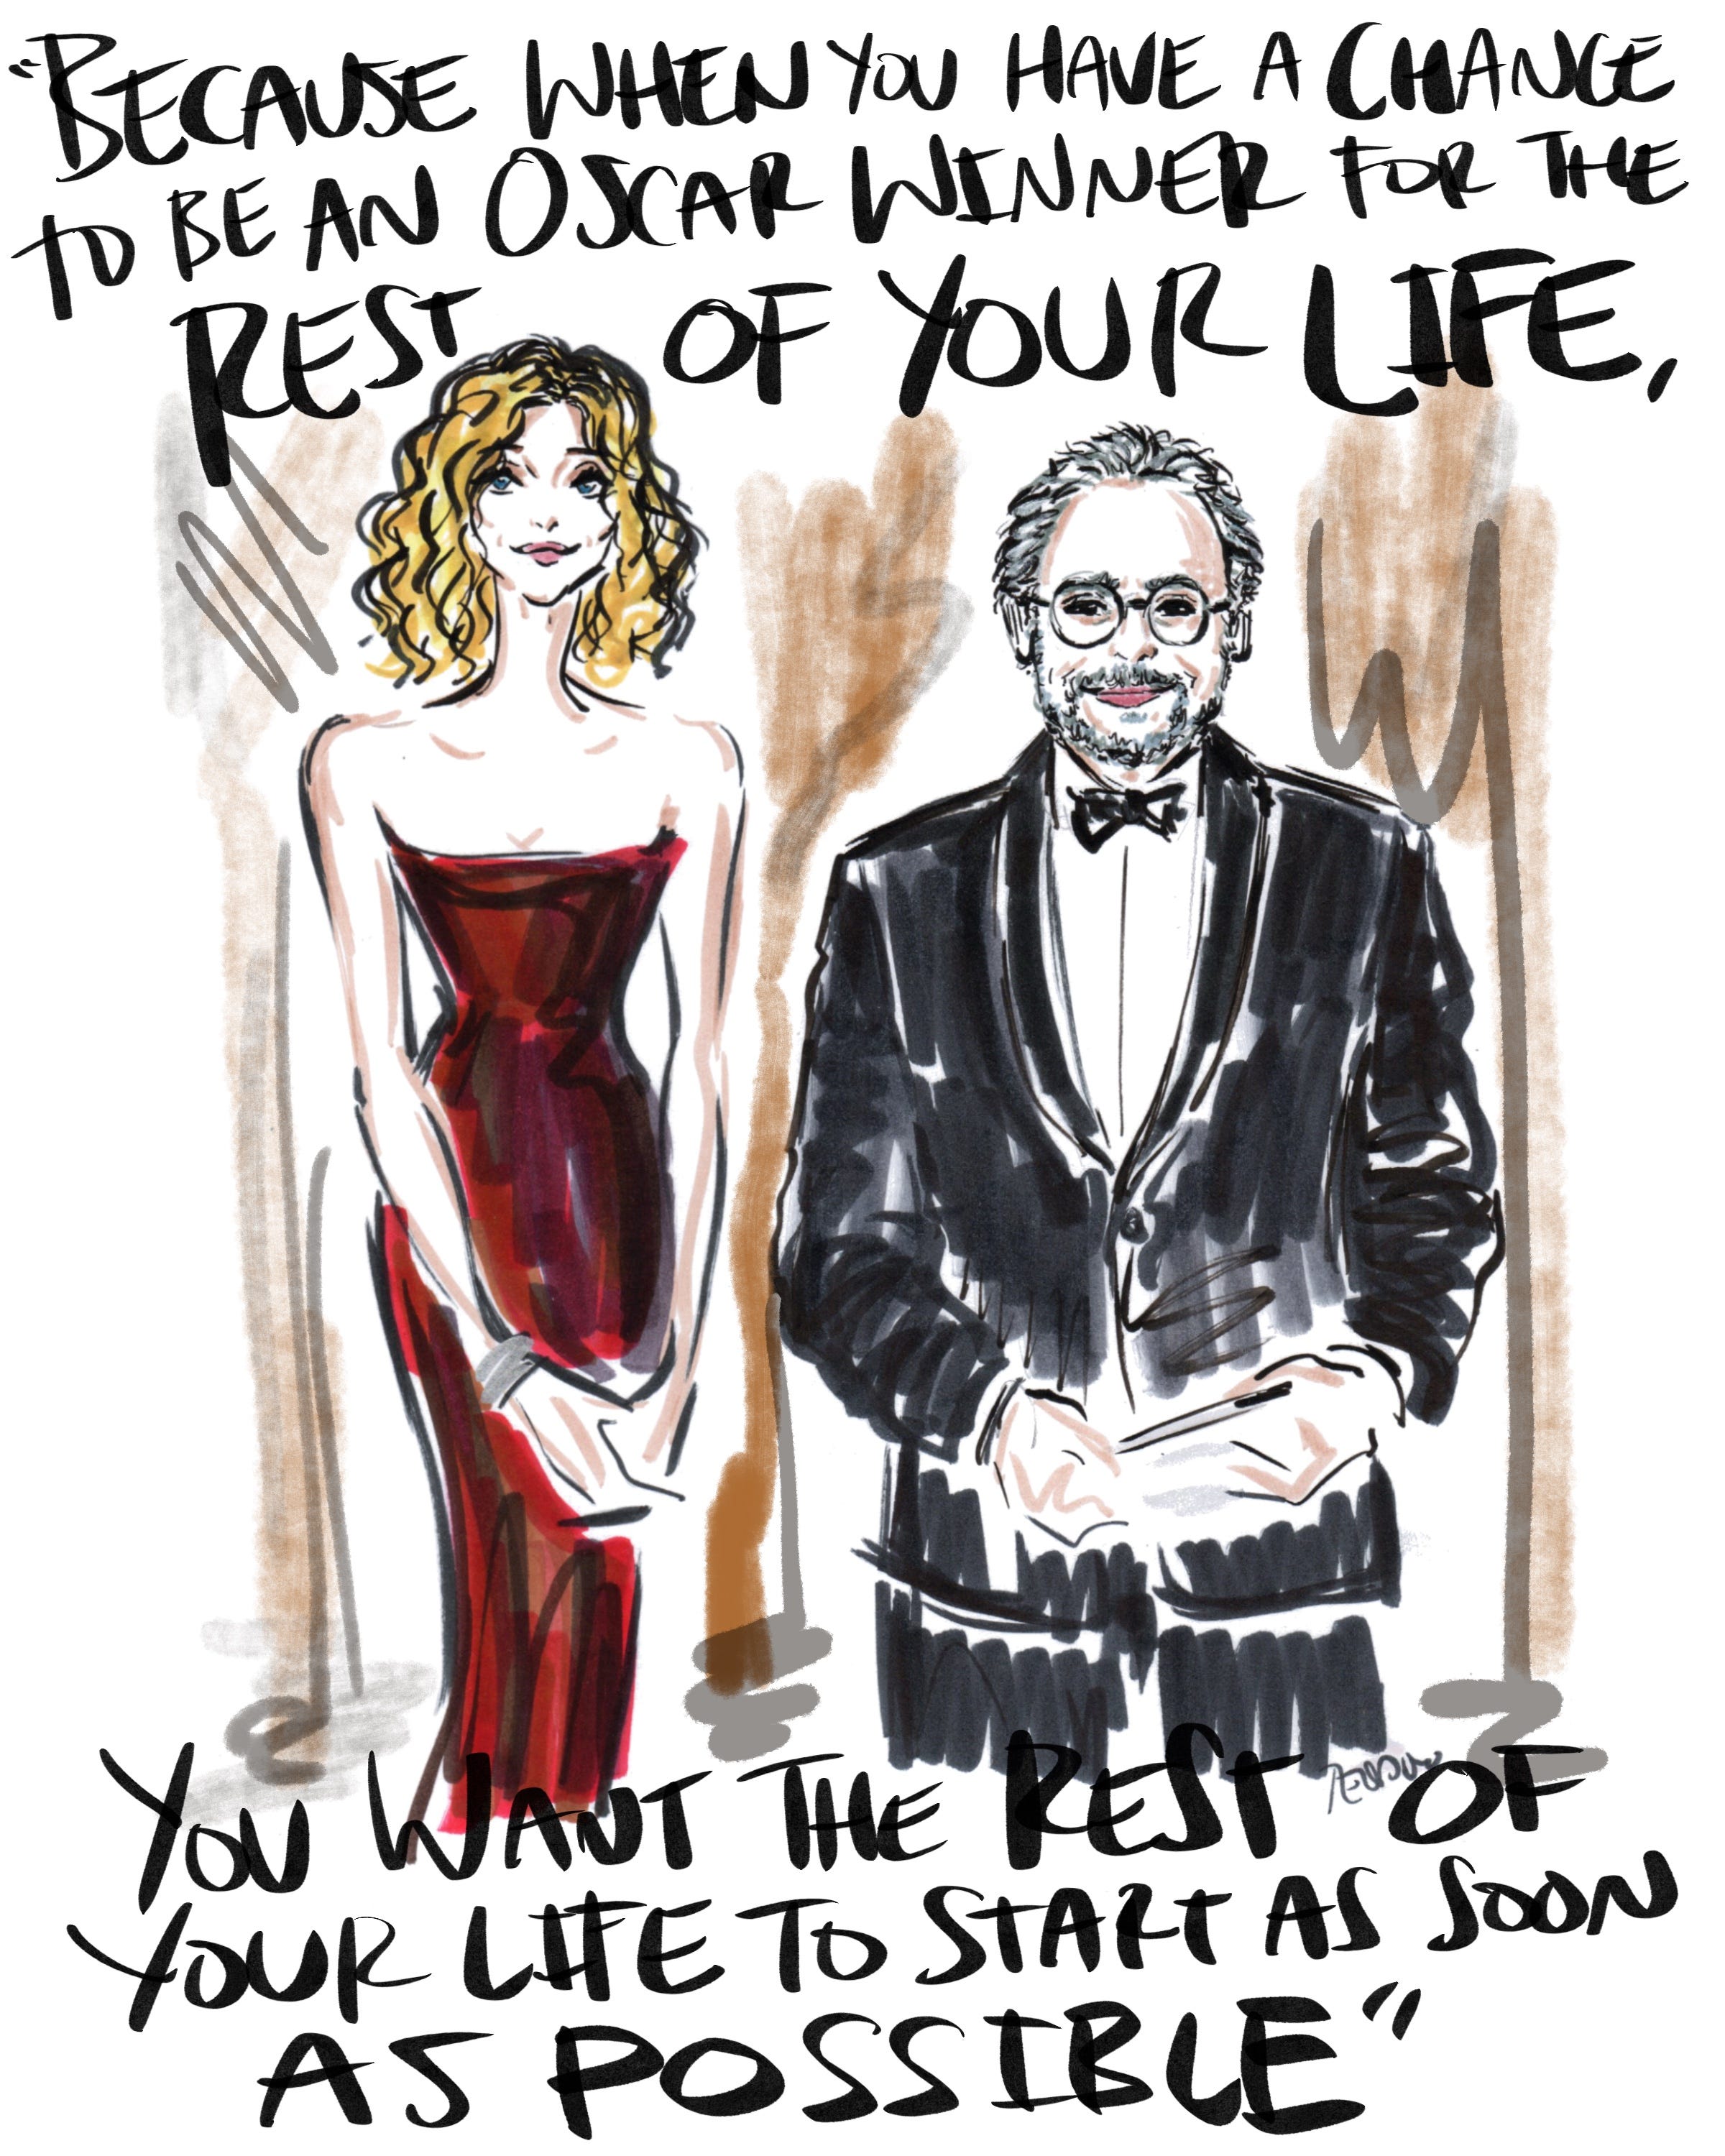 "BECAUSE WHEN YOU HAVE A CHANCE
TO BE AN OSCAR WINNER FOR THE
REST OF YOUR LIFE,
YOU WANT THE REST OF
YOUR LIFE TO START AS SOON
AS POSSIBLE"